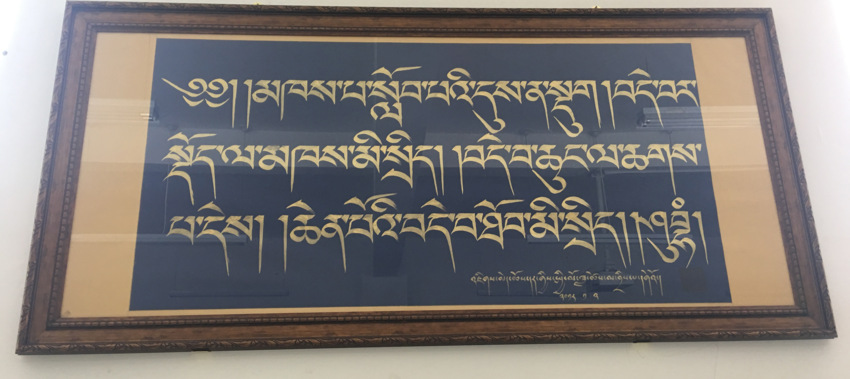 ༄༅། །མཁས་པ་སློབ་པའི་དུས་ན་སྡུག །བདེ་བར་
སྡོད་ལ་མཁས་མི་སྲིད། །བདེ་བ་ཆུང་ལ་ཆགས་
པ་དེས། །ཆེན་པོའི་བདེ་བ་ཐོབ་མི་སྲིད། །